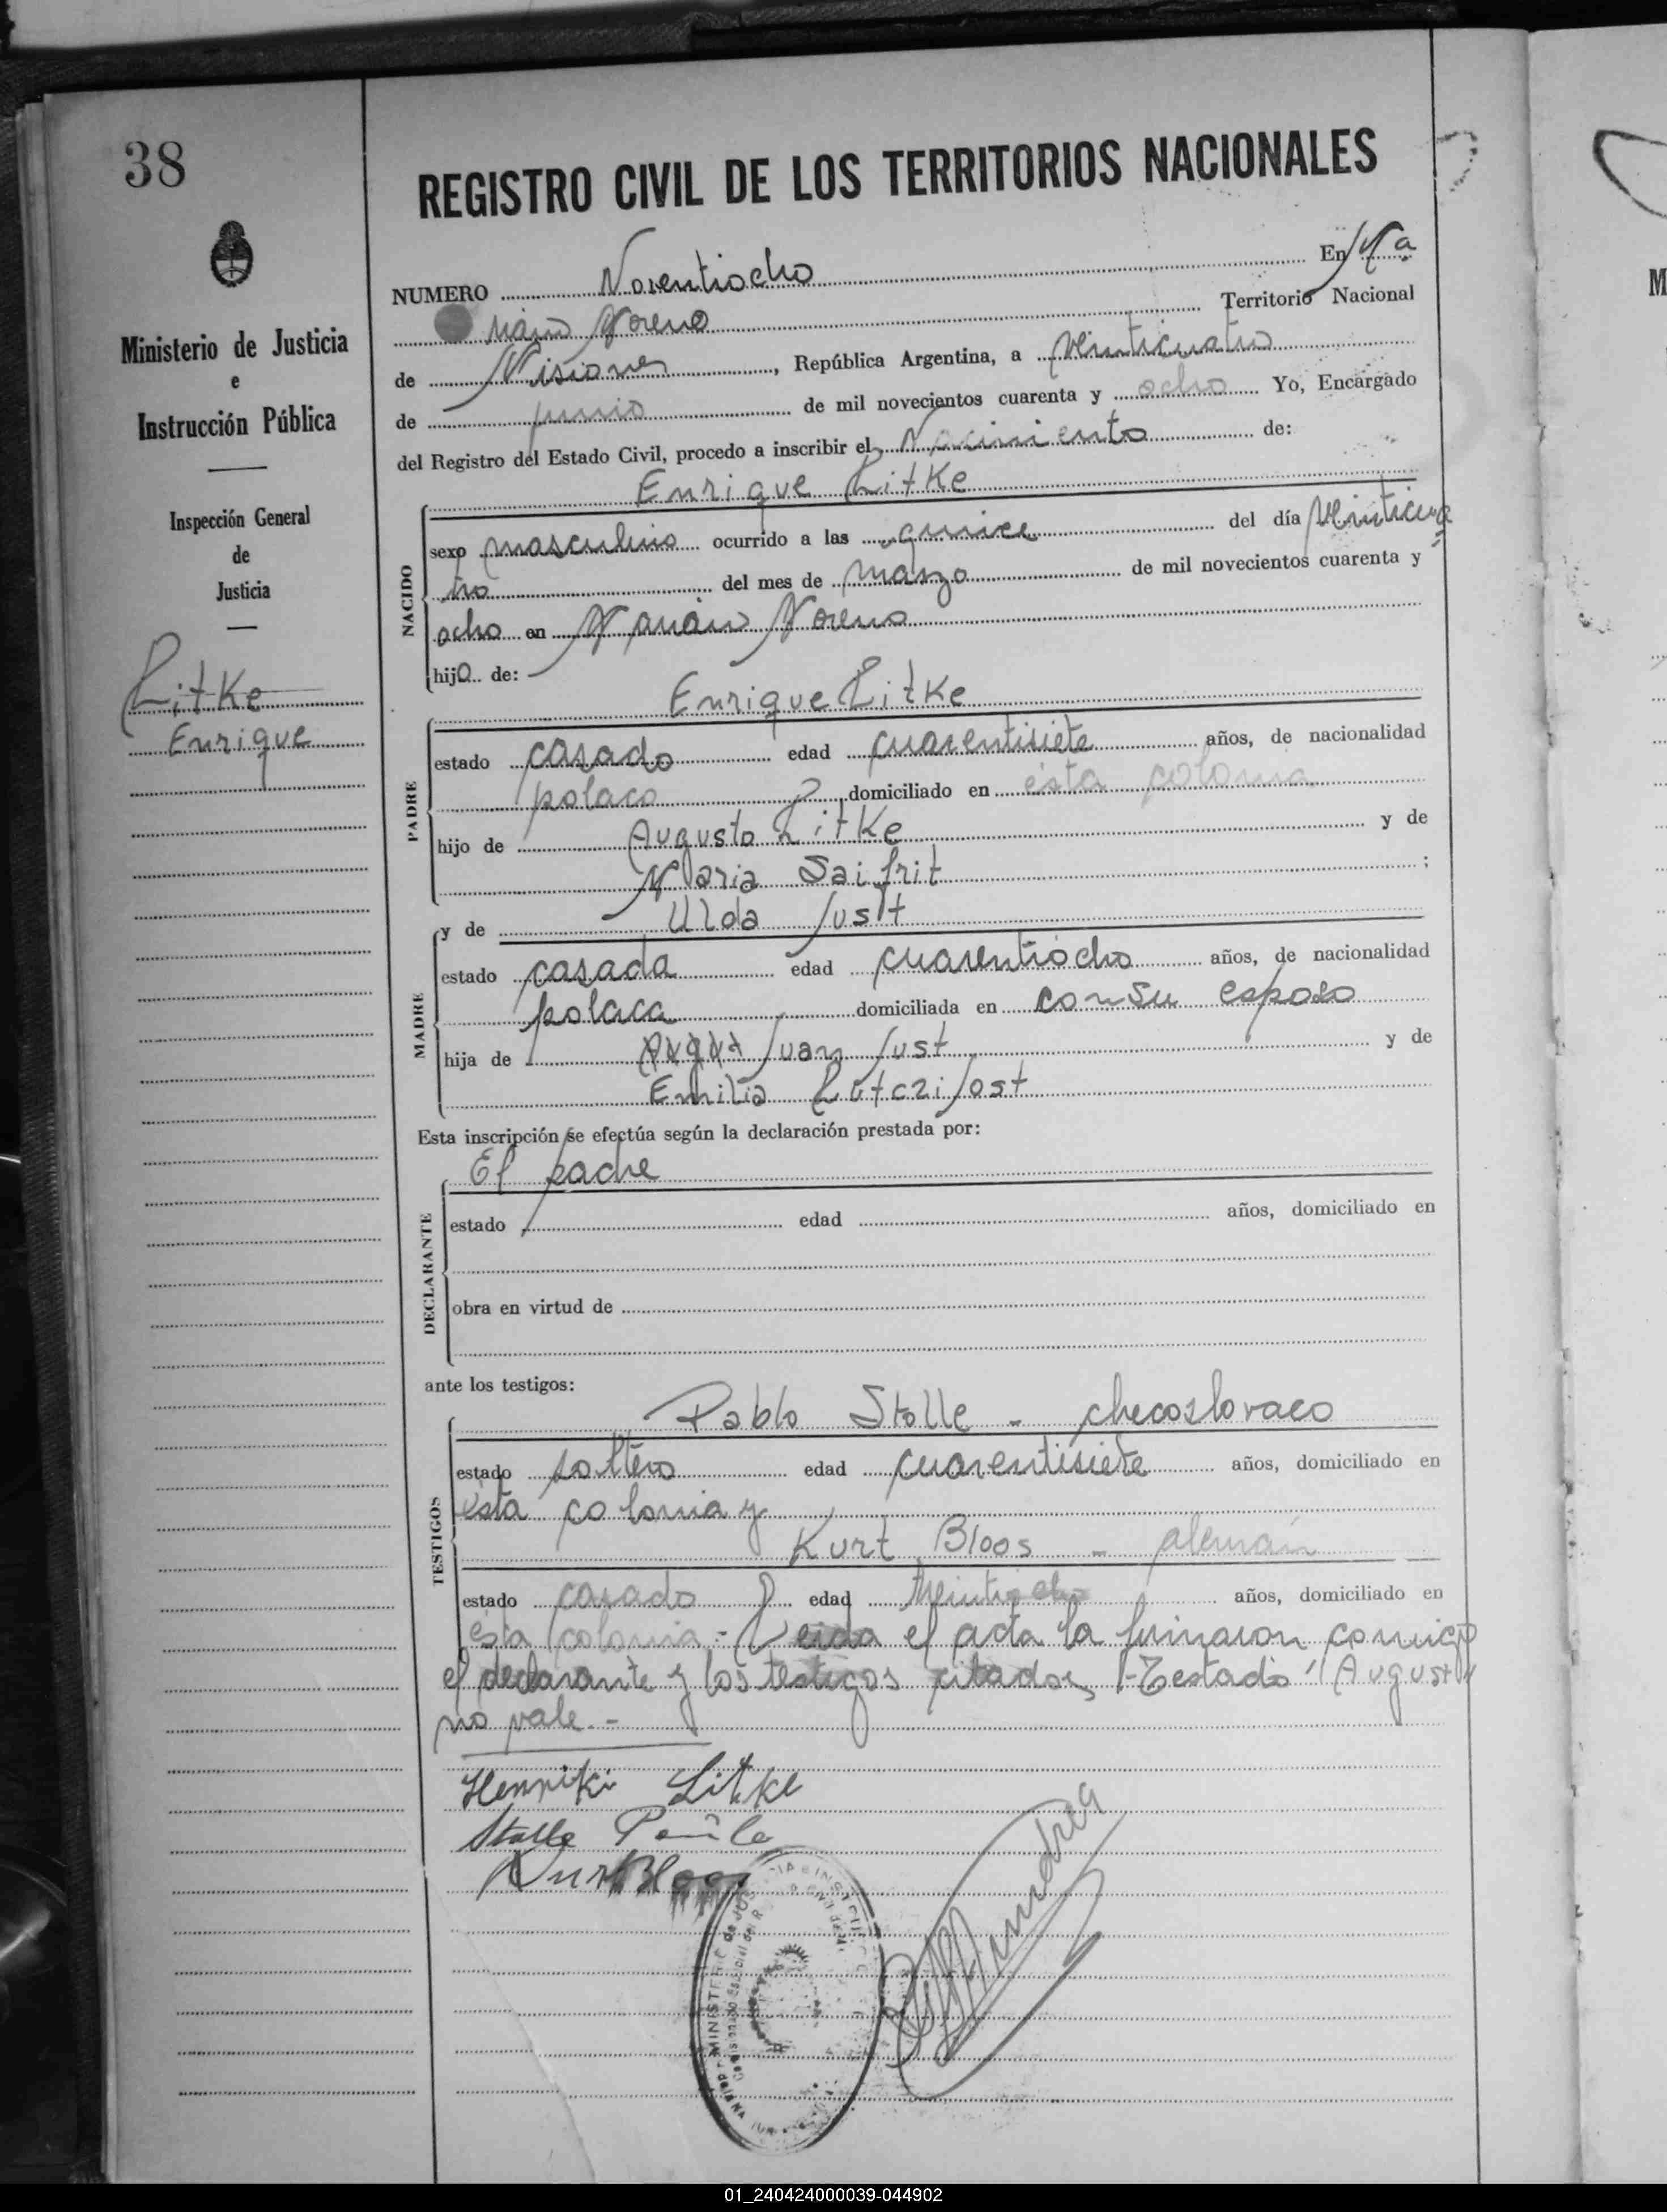 38
REGISTRO CIVIL DE LOS TERRITORIOS NACIONALES
NUMERO Noventiocho En Ma
riano Moreno Territorio Nacional
de Misiones, República Argentina, a veinticuatro
de junio de mil novecientos cuarenta y ocho Yo, Encargado
del Registro del Estado Civil, procedo a inscribir el Nacimiento de:
Ministerio de Justicia
e
Instrucción Pública
Inspección General
de
Justicia
Litke
Enrique
Enrique Litke
NACIDO
sexo masculino ocurrido a las quince del día veinticua=
tro del mes de marzo de mil novecientos cuarenta y
ocho en Mariano Moreno
hijo de:
Enrique Litke
PADRE
estado casado edad cuarentisiete años, de nacionalidad
polaco domiciliado en ésta colonia
hijo de Augusto Litke y de
Maria Saifrit ;
y de Ulda Just
MADRE
estado casada edad cuarentiocho años, de nacionalidad
polaca domiciliada en con su esposo
hija de Juan Just y de
Emilia
Esta inscripción se efectúa según la declaración prestada por:
El padre
DECLARANTE
estado edad años, domiciliado en
obra en virtud de
ante los testigos:
Pablo Stolle - checoslovaco
TESTIGOS
estado soltero edad cuarentisiete años, domiciliado en
ésta colonia y
Kurt Bloos - alemán
estado casado edad treintiocho años, domiciliado en
ésta colonia.- Leida el acta la firmaron conmigo
el declarante y los testigos citados.- Testado: "August"
no vale.-
Henriki Litke
Stolle Paule
Kurt Bloos
01_240424000039-044902